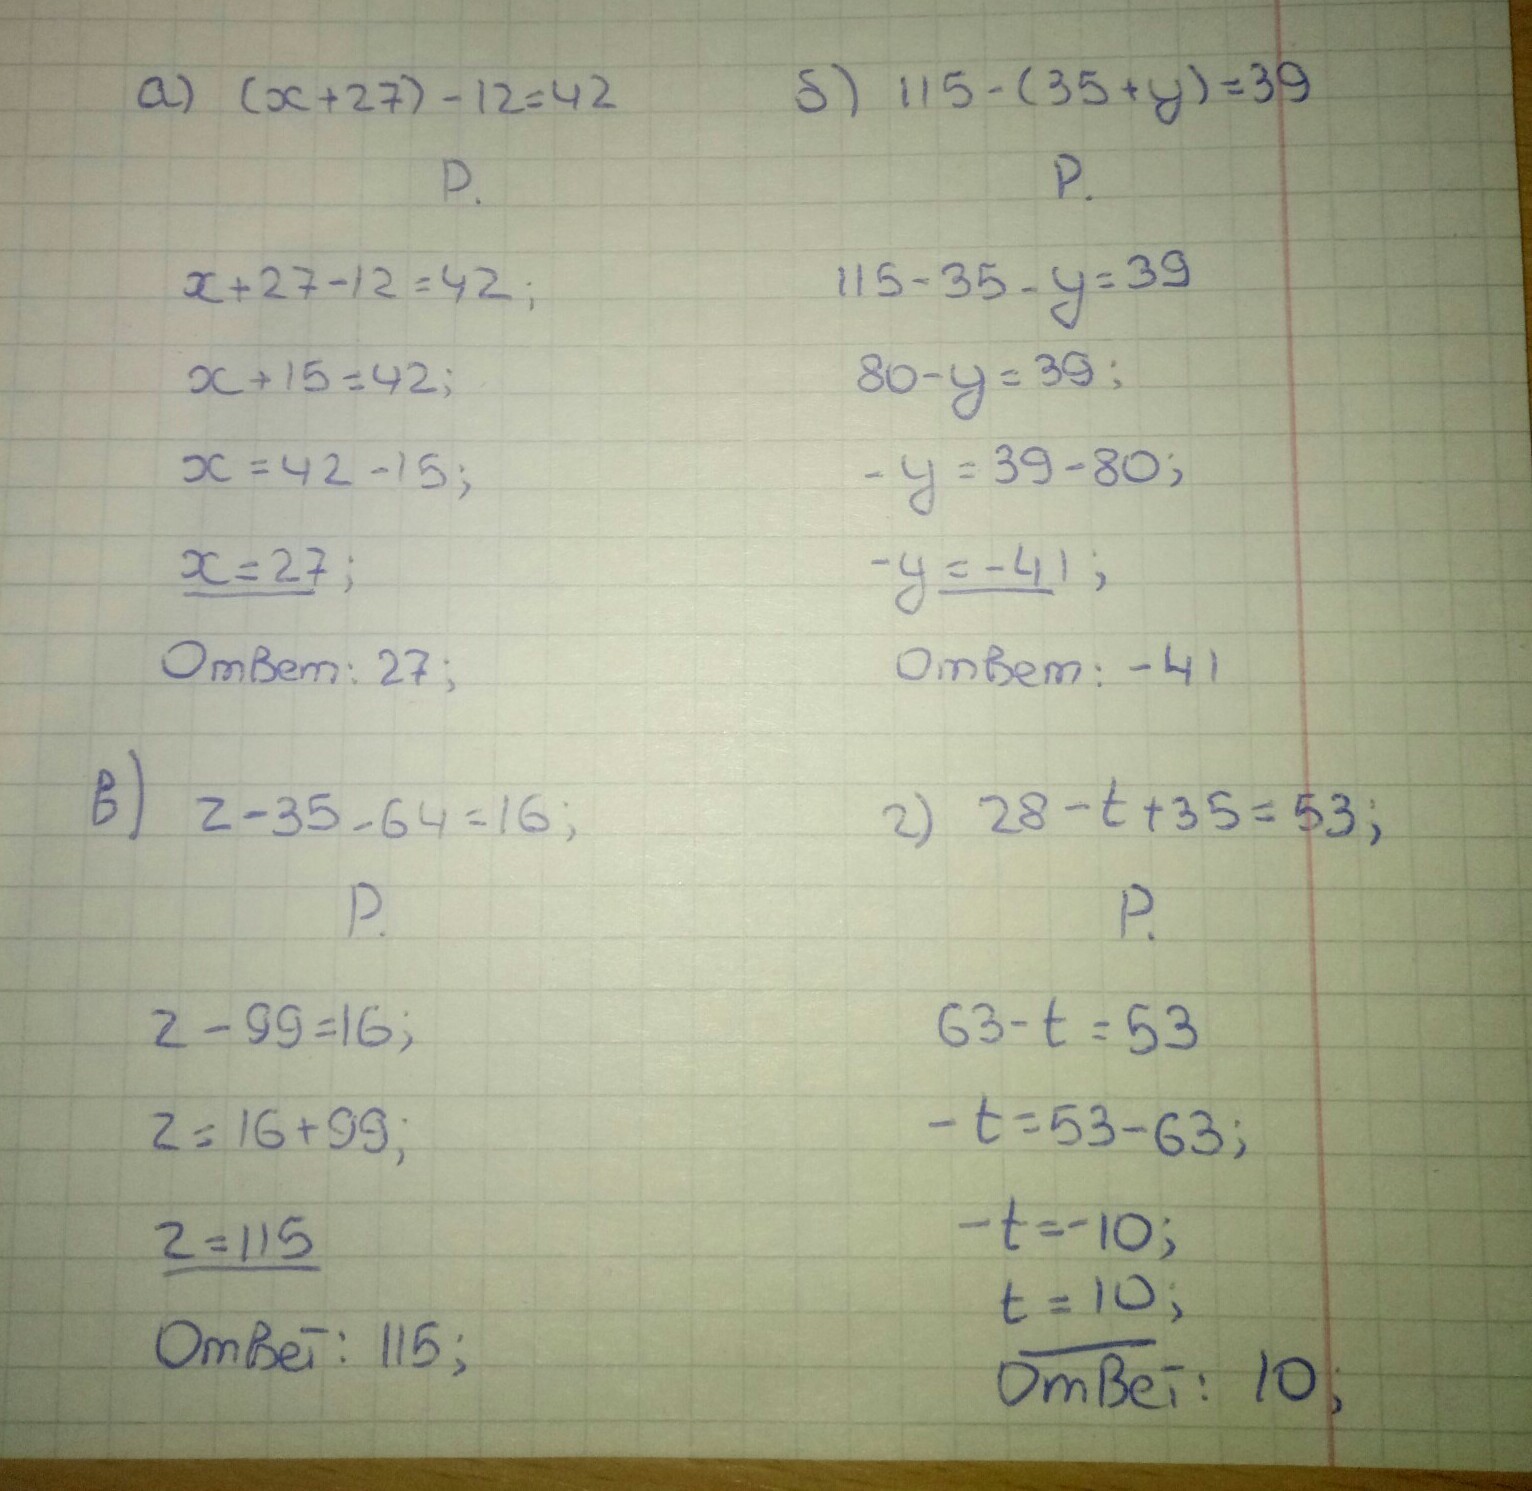 а) (x+27)-12=42
Р.
x+27-12=42;
x+15=42;
x=42-15;
x=27;
Ответ: 27;
б) 115-(35+y)=39
Р.
115-35-y=39
80-y=39;
-y=39-80;
-y=-41;
Ответ: -41
в) z-35-64=16;
Р.
z-99=16;
z=16+99;
z=115
Ответ: 115;
г) 28-t+35=53;
Р.
63-t=53
-t=53-63;
-t=-10;
t=10;
Ответ: 10;